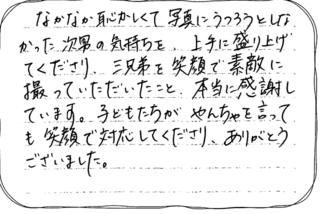 なかなか恥かしくて写真にうつろうとしな
かった次男の気持ちを、上手に盛り上げ
てくださり、三兄弟を笑顔で素敵に
撮っていただいたこと、本当に感謝し
ています。子どもたちが やんちゃを言って
も笑顔で対応してくださり、ありがとう
ございました。